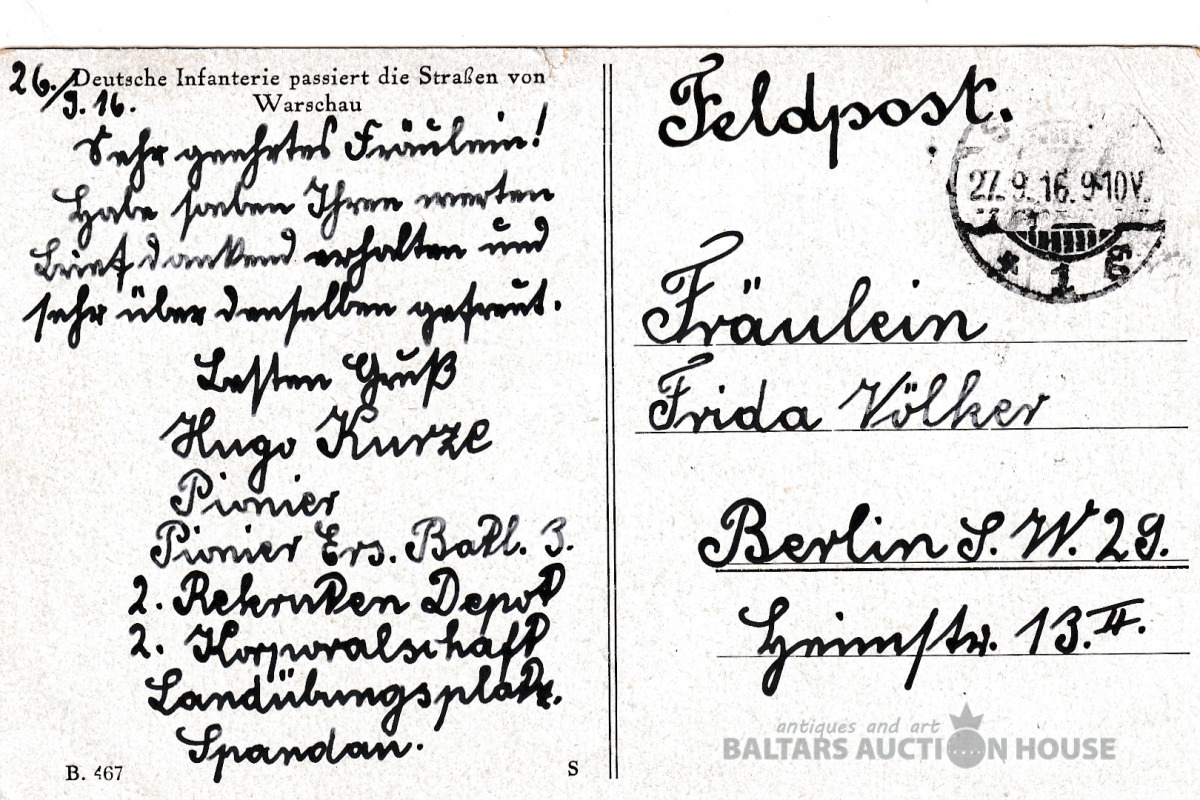 26./9.16.
Deutsche Infanterie passiert die Straßen von
Warschau
Sehr geehrtes Fräulein!
Habe soeben Ihren werten
Brief dankend erhalten und
sehr über denselben gefreut.
Besten Gruß
Hugo Kurze
Pionier
Pionier Ers. Batl. 3.
2. Rekruten Depot
2. Korporalschaft
Landübungsplatz.
Spandau.
B. 467
S
Feldpost.
27.9.16.9-10V.
* 1
Fräulein
Frida Völker
Berlin S. W. 29.
Heimstr. 13.II.
antiques and art
BALTARS AUCTION HOUSE